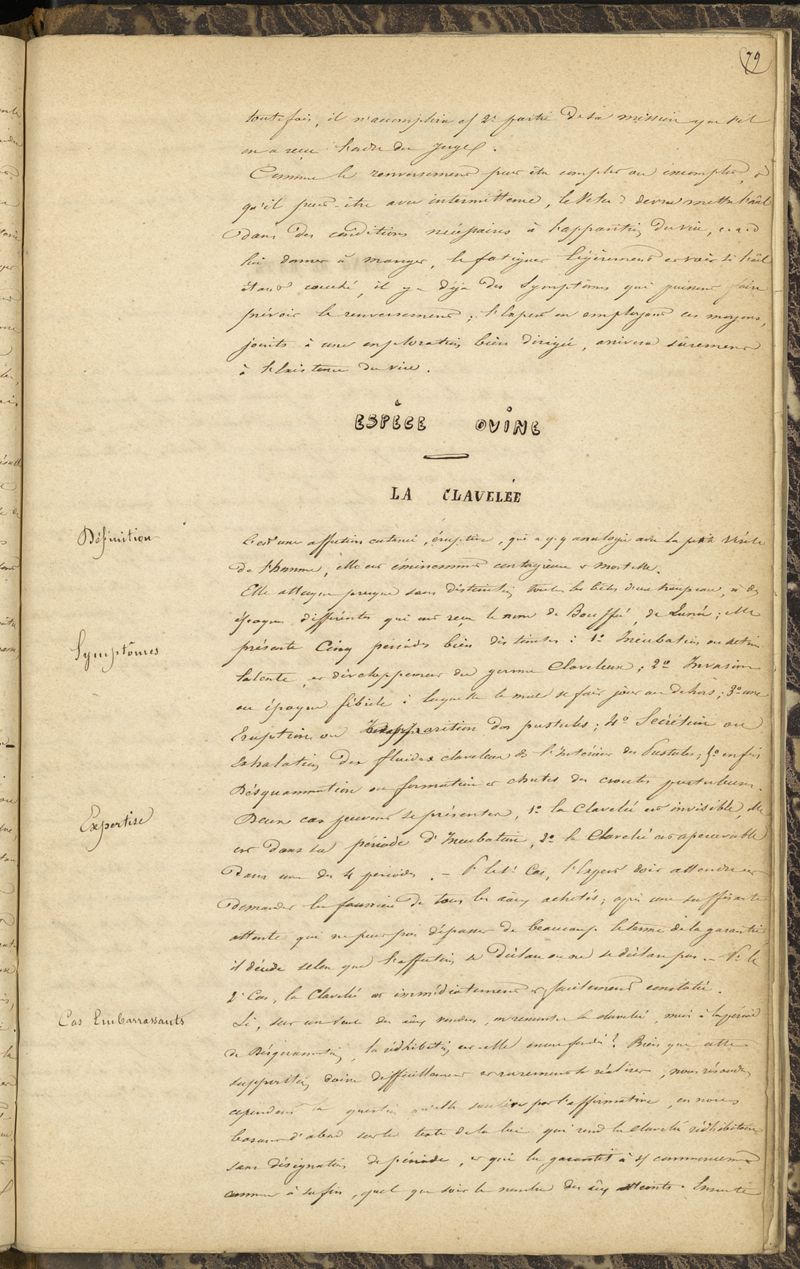 79
toutefois, il n'accomplira cette 2e partie de sa mission que s'il
en a reçu l'ordre du Juge.
Comme le renversement peut être complet ou incomplet, &
qu'il peut-être avec intermittence, le devra mettre
dans des conditions nécessaires à l'apparition du vice,
lui donner à manger, le fatiguer légèrement et voir si
étant couché, il y a déjà des symptômes qui puissent faire
prévoir le renversement ; l'Expert en employant ces moyens,
joints à une exploration bien dirigée, arrivera sûrement
à l'Existence du vice.
ESPÈCE OVINE
LA CLAVELÉE
Définition
C'est une affection cutanée, éruptive, qui a analogie avec la petite vérole
de l'homme, elle est éminemment contagieuse & mortelle.
Elle attaque presque sans distinction toutes les bêtes d'un troupeau, à des
époques différentes qui ont reçu le nom de Bouffée, de Lunée ; elle
Symptômes
présente Cinq périodes bien distinctes : 1° Incubation ou action
latente, et développement du germe Claveleux ; 2° Invasion
ou époque fébrile à laquelle le mal se fait jour au dehors ; 3° une
Eruption ou apparition des pustules ; 4° Secrétion ou
Exhalation des fluides claveleux de l'Intérieur des Pustules ; 5° enfin
Désquammation ou formation et chutes des croutes pustuleuses.
Expertise
Deux cas peuvent se présenter, 1° la Clavelée est invisible, elle
est dans sa période d'Incubation, 2° la Clavelée est apercevable
dans une des 4 périodes. — 1er Cas, l'Expert doit attendre et
demander la fourrière de tous les achetés ; après une suffisante
attente qui ne peut pas dépasser de beaucoup le terme de la garantie
il décide selon que l'affection se déclare ou ne se déclare pas. — le
2e Cas, la Clavelée est immédiatement et facilement constatée.
Cas Embarrassants
Si, sur un seul des vendus, on rencontre la clavelée, mais à la période
de Désquammation, la rédhibition est-elle encore fondée ? Bien que cette
supposition doive difficilement et rarement se réaliser, nous résoudrons
cependant la question par l'affirmative, en nous
basant d'abord sur le texte de la loi qui rend la clavelée rédhibitoire
sans désignation de période, et qui la garantit à son commencement
comme à sa fin, quel que soit le nombre des atteints. Ensuite